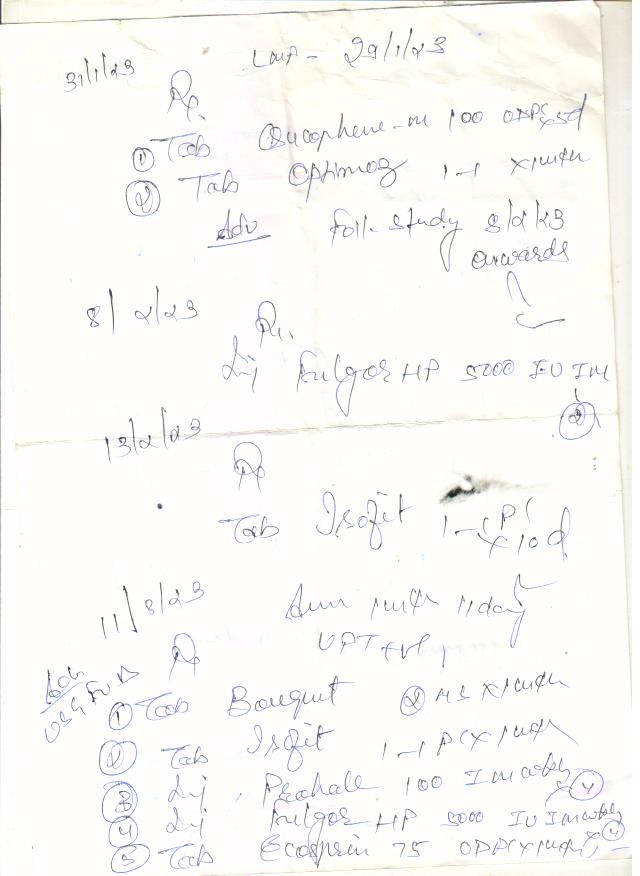 31/1/23 LMP - 29/1/23
Rx
① Tab 100 ODPC x5d
② Tab Optimoz 1-1 x1mth
Adv Foll. study 8/2/23
onwards
8/2/23
Rx.
Inj Fulgor HP 5000 IU IM
②
13/2/23
Rx
Tab Isofit 1-1 PC
x10d
11/3/23 Amn 1mth 11day
UPT +ve
Adv Rx
USG FWB
① Tab Bouquet ② HS x1mth
② Tab Isofit 1-1 PC x1mth
③ Inj. 100 IM wkly ④
④ Inj Fulgor HP 5000 IU IM wkly ④
⑤ Tab Ecosprin 75 ODPC x1mth